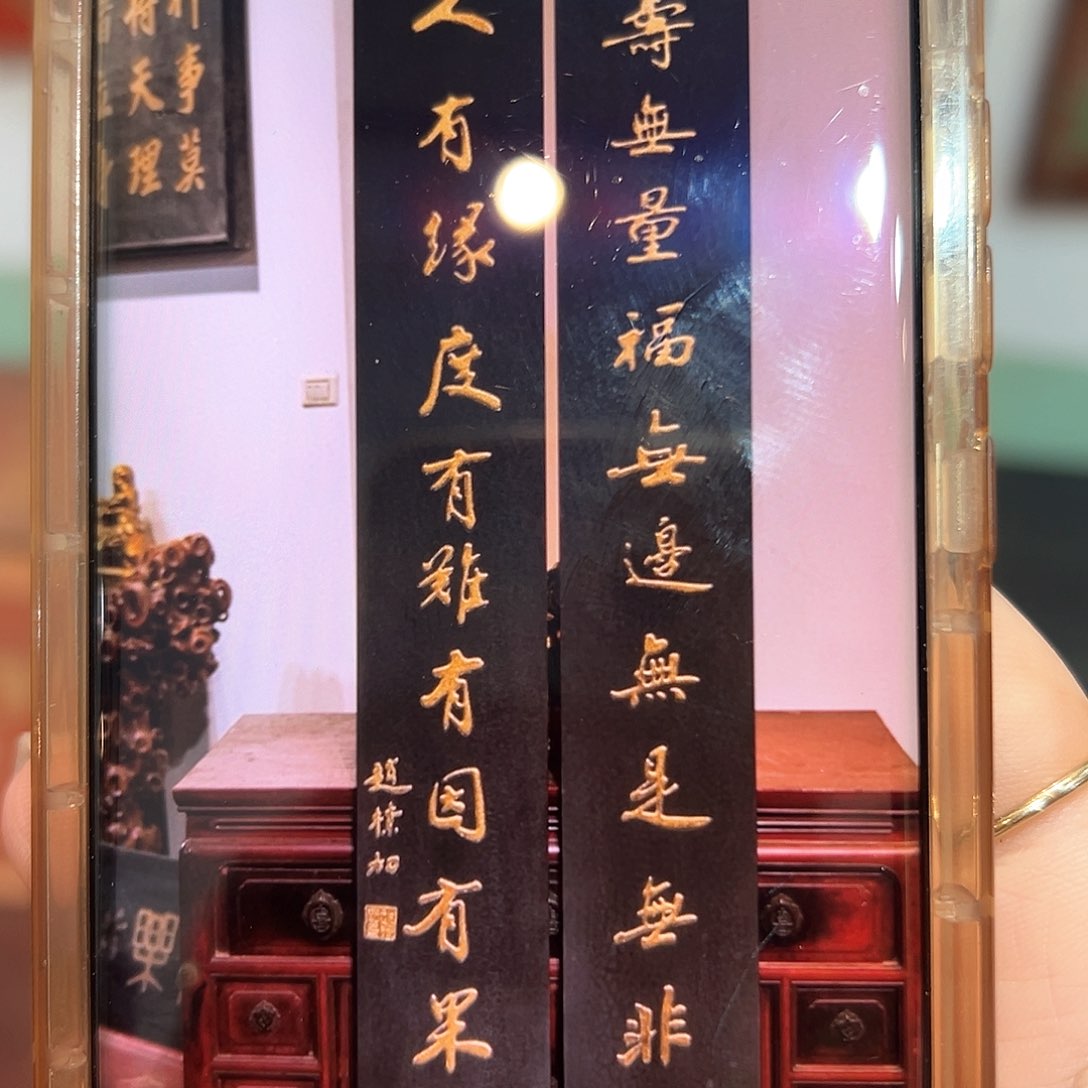 壽無量福無邊無是無非
人有緣度有難有因有果
趙樸初
事莫
天理